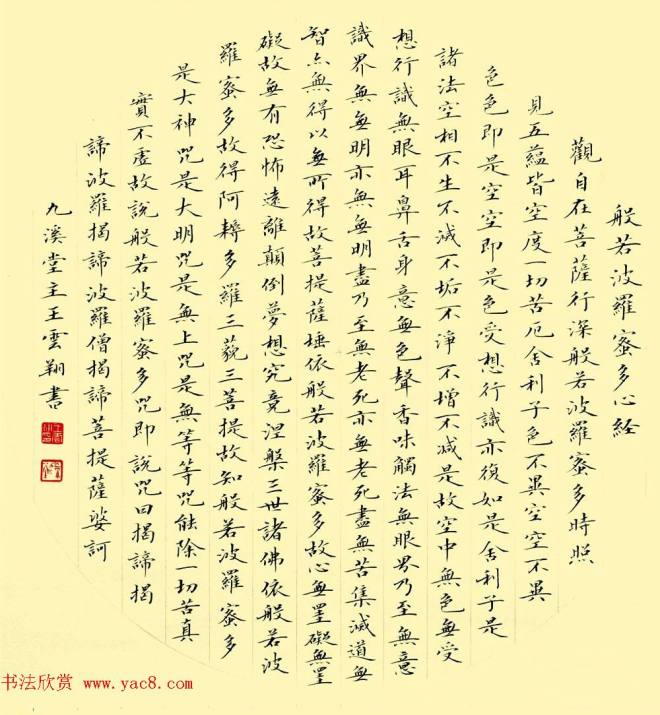 般若波羅蜜多心経
觀自在菩薩行深般若波羅蜜多時照
見五蘊皆空度一切苦厄舍利子色不異空空不異
色色即是空空即是色受想行識亦復如是舍利子是
諸法空相不生不減不垢不淨不增不減是故空中無色無受
想行識無眼耳鼻舌身意無色聲香味觸法無眼界乃至無意
識界無無明亦無無明盡乃至無老死亦無老死盡無苦集滅道無
智亦無得以無所得故菩提薩埵依般若波羅蜜多故心無罣礙無罣
礙故無有恐怖遠離顛倒夢想究竟涅槃三世諸佛依般若波
羅蜜多故得阿耨多羅三藐三菩提故知般若波羅蜜多
是大神咒是大明咒是無上咒是無等等咒能除一切苦真
實不虛故說般若波羅蜜多咒即說咒曰揭諦揭
諦波羅揭諦波羅僧揭諦菩提薩娑訶
九溪堂主王雲翔書
书法欣赏 www.yac8.com